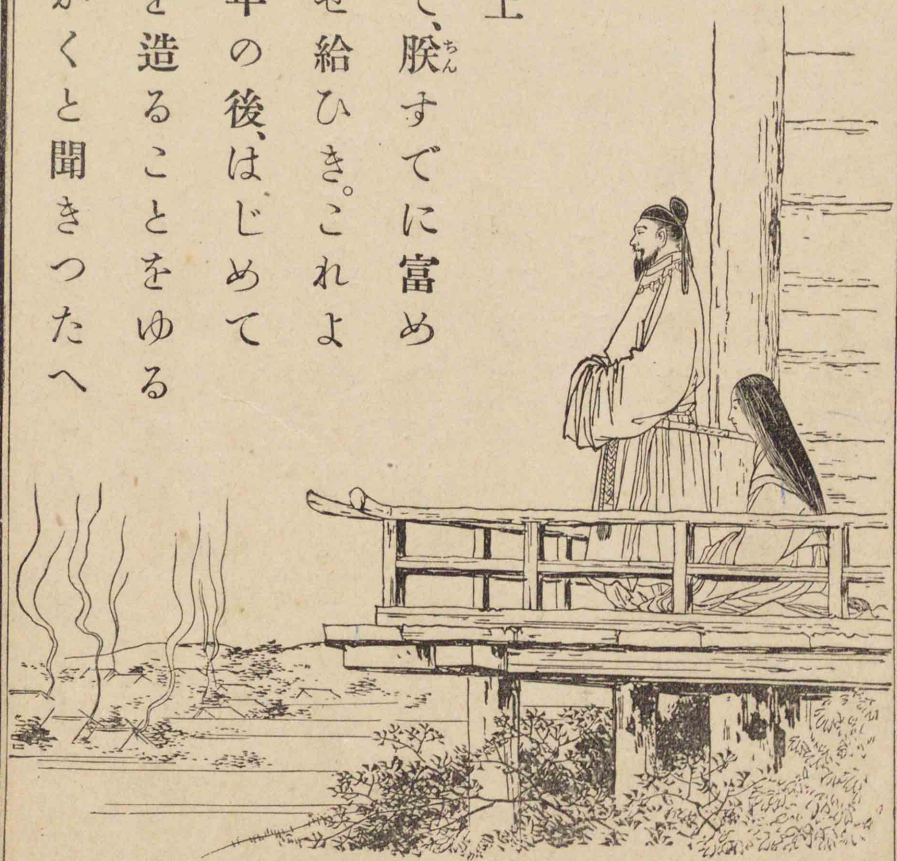 上
て、朕すでに富め
ちん
せ給ひき。これよ
年の後、はじめて
を造ることをゆる
がくと聞きつたへ